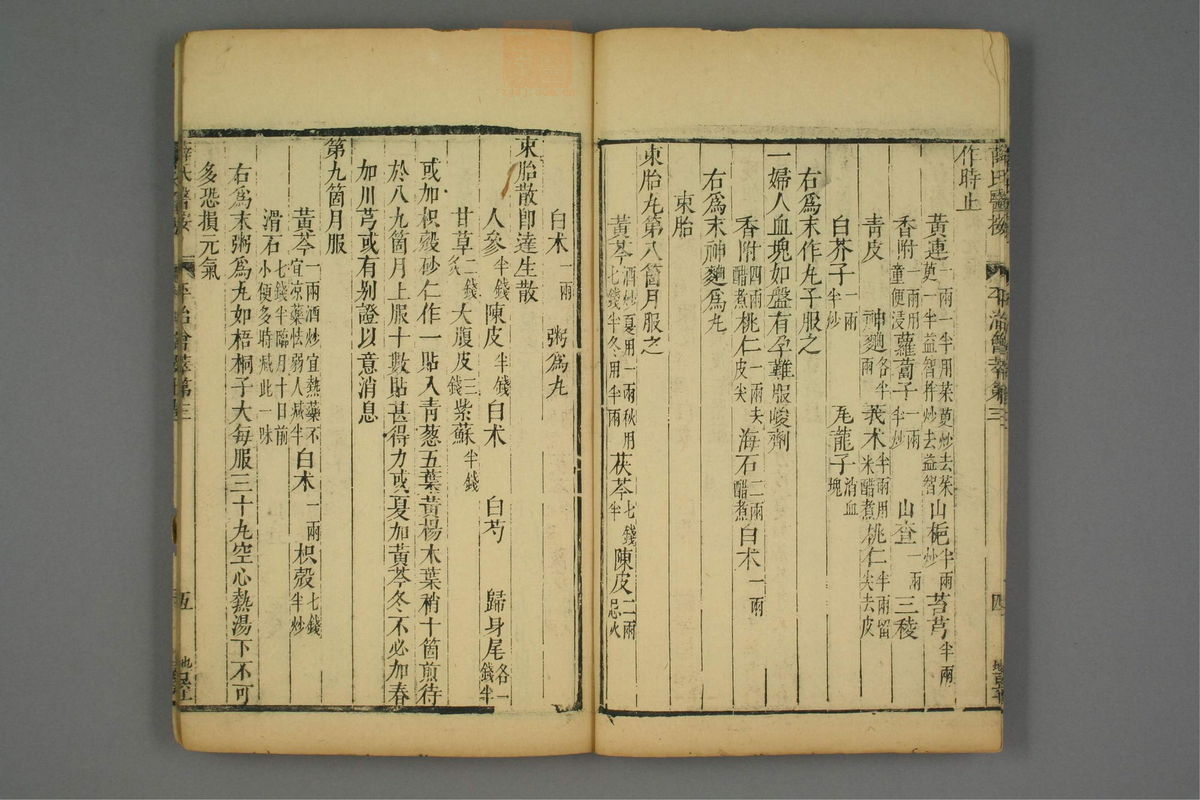 作時止
黃連一兩一半用茱萸炒去茱萸一半益智幷炒去益智山梔半兩炒芎芎半兩
香附一兩用童便浸蘿蔔子一兩半炒山查一兩三稜
青皮神麯各半兩莪朮半兩用米醋煮桃仁半兩留尖去皮
白芥子一兩半炒瓦龍子消血塊
右爲末作丸子服之
一婦人血塊如盤有孕難服峻劑
香附四兩醋煮桃仁一兩去皮尖海石二兩醋煮白朮一兩
右爲末神麯爲丸
束胎
束胎丸第八箇月服之
黃芩酒炒夏用一兩秋用七錢半冬用半兩茯苓七錢半陳皮二兩忌火
白朮一兩粥爲丸
束胎散卽達生散
人參半錢陳皮半錢白朮白芍歸身尾各一錢半
甘草二錢炙大腹皮三錢紫蘇半錢
或加枳殼砂仁作一貼入青葱五葉黃楊木葉稍十箇煎待
於八九箇月上服十數貼甚得力或夏加黃芩冬不必加春
加川芎或有別證以意消息
第九箇月服
黃芩一兩酒炒宜熱藥不宜凉藥怯弱人減半白朮一兩枳殼七錢半炒
滑石七錢半臨月十日前小便多時減此一味
右爲末粥爲丸如梧桐子大每服三十丸空心熱湯下不可
多恐損元氣